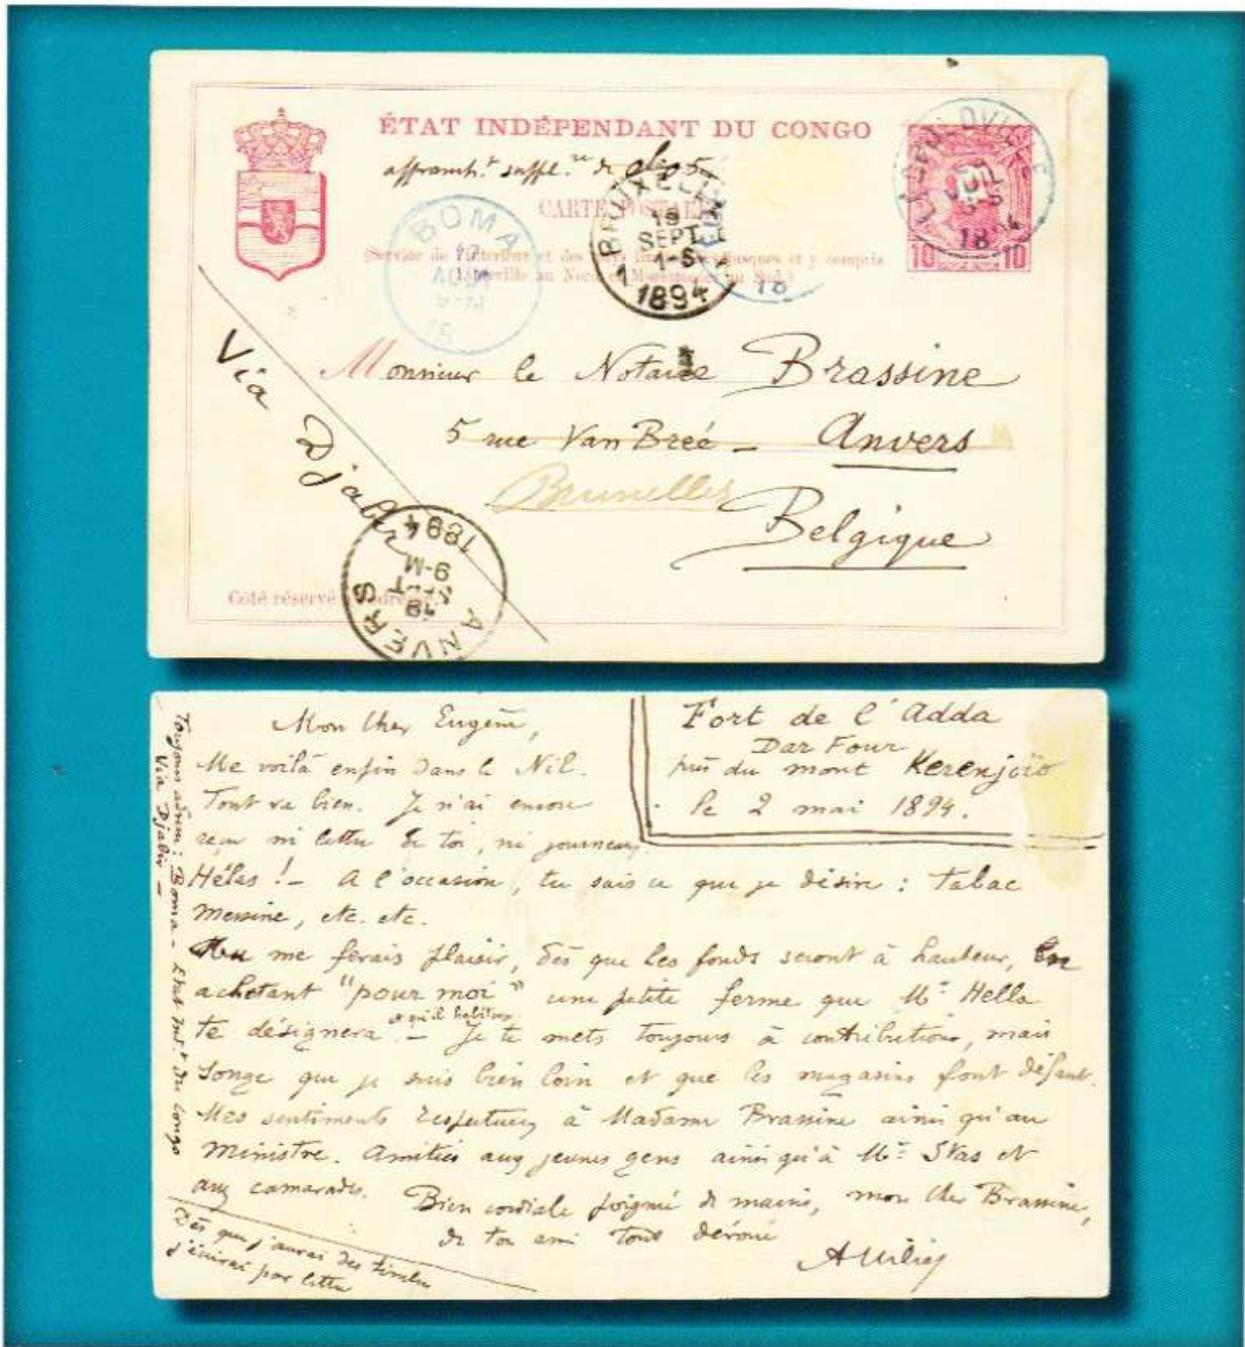 ÉTAT INDÉPENDANT DU CONGO
affranch.t suppl.re de
CARTE POSTALE
BOMA
17
AOUT
BRUXELLES
19
SEPT
1-S
1
1894
LÉOPOLDVILLE
JUIL
18 4
10 10
18
Via Djabir
Monsieur le Notaire Brassine
5 rue Van Breé - Anvers
Bruxelles
Belgique
ANVERS
19
SEPT
9-M
1894
Côté réservé à l'adresse.
Fort de l'Adda
Dar Four
près du mont Kerenjoïo
le 2 mai 1894.
Mon cher Eugène,
Me voilà enfin dans le Nil.
Tout va bien. Je n'ai encore
reçu ni lettre de toi, ni journaux.
Hélas ! - A l'occasion, tu sais ce que je désire : tabac
Messine, etc. etc.
Tu me ferais plaisir, dès que les fonds seront à hauteur, en
achetant "pour moi" une petite ferme que Mr Hella
te désignera et qu'il habitera. - Je te mets toujours à contribution, mais
songe que je suis bien loin et que les magasins font défaut.
Mes sentiments respectueux à Madame Brassine ainsi qu'au
Ministre. Amitiés aux jeunes gens ainsi qu'à Mr Stas et
aux camarades. Bien cordiale poignée de mains, mon cher Brassine,
de ton ami tout dévoué
Toujours adress : Boma - Etat Ind.t du Congo
Via Djabir -
Dès que j'aurai des timbres
j'écrirai par lettre